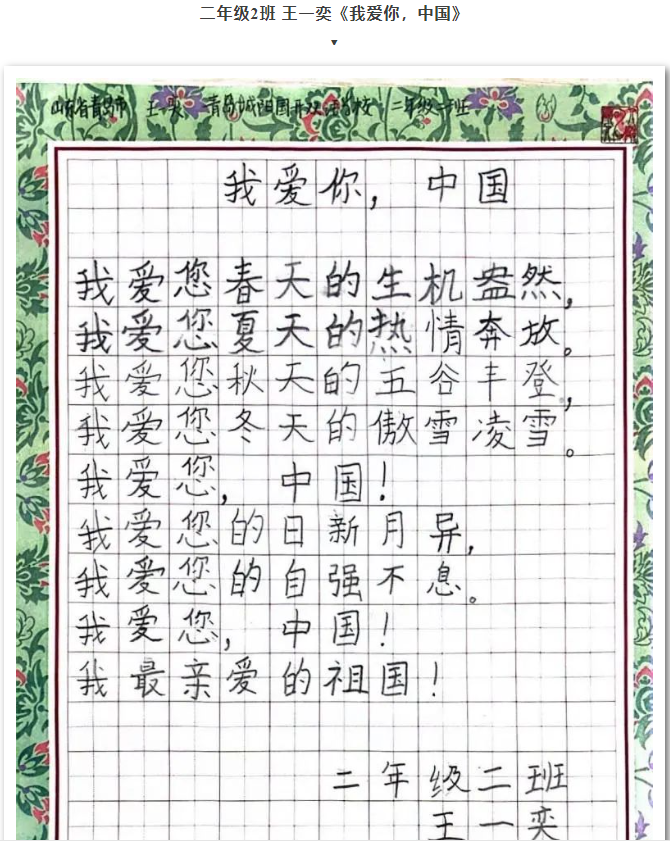 二年级2班 王一奕《我爱你，中国》
山东省青岛市 王一奕 青岛城阳国开双语学校 二年级二班
我爱你，中国
我爱您春天的生机盎然，
我爱您夏天的热情奔放。
我爱您秋天的五谷丰登，
我爱您冬天的傲雪凌雪。
我爱您，中国！
我爱您的日新月异，
我爱您的自强不息。
我爱您，中国！
我最亲爱的祖国！
二年级二班
王一奕